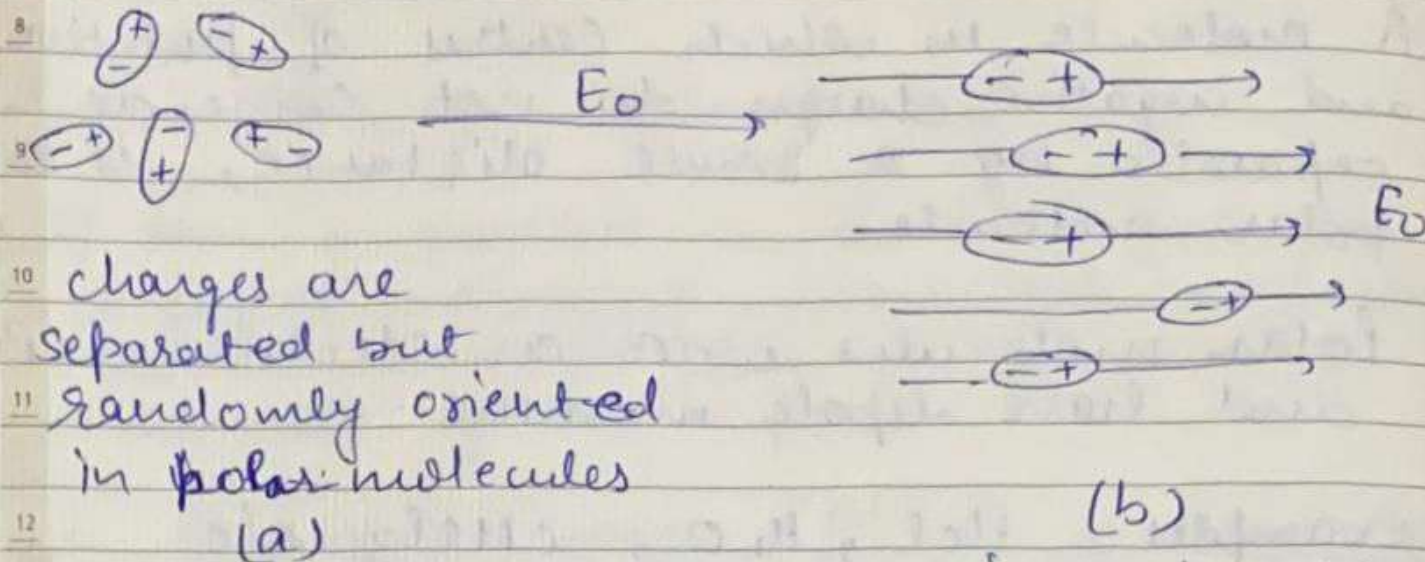 8
+ - - +
E₀
- +
- +
9
- + - + + -
- +
E₀
10
charges are
- +
separated but
- +
11
randomly oriented
in polar molecules
12
(a)
(b)